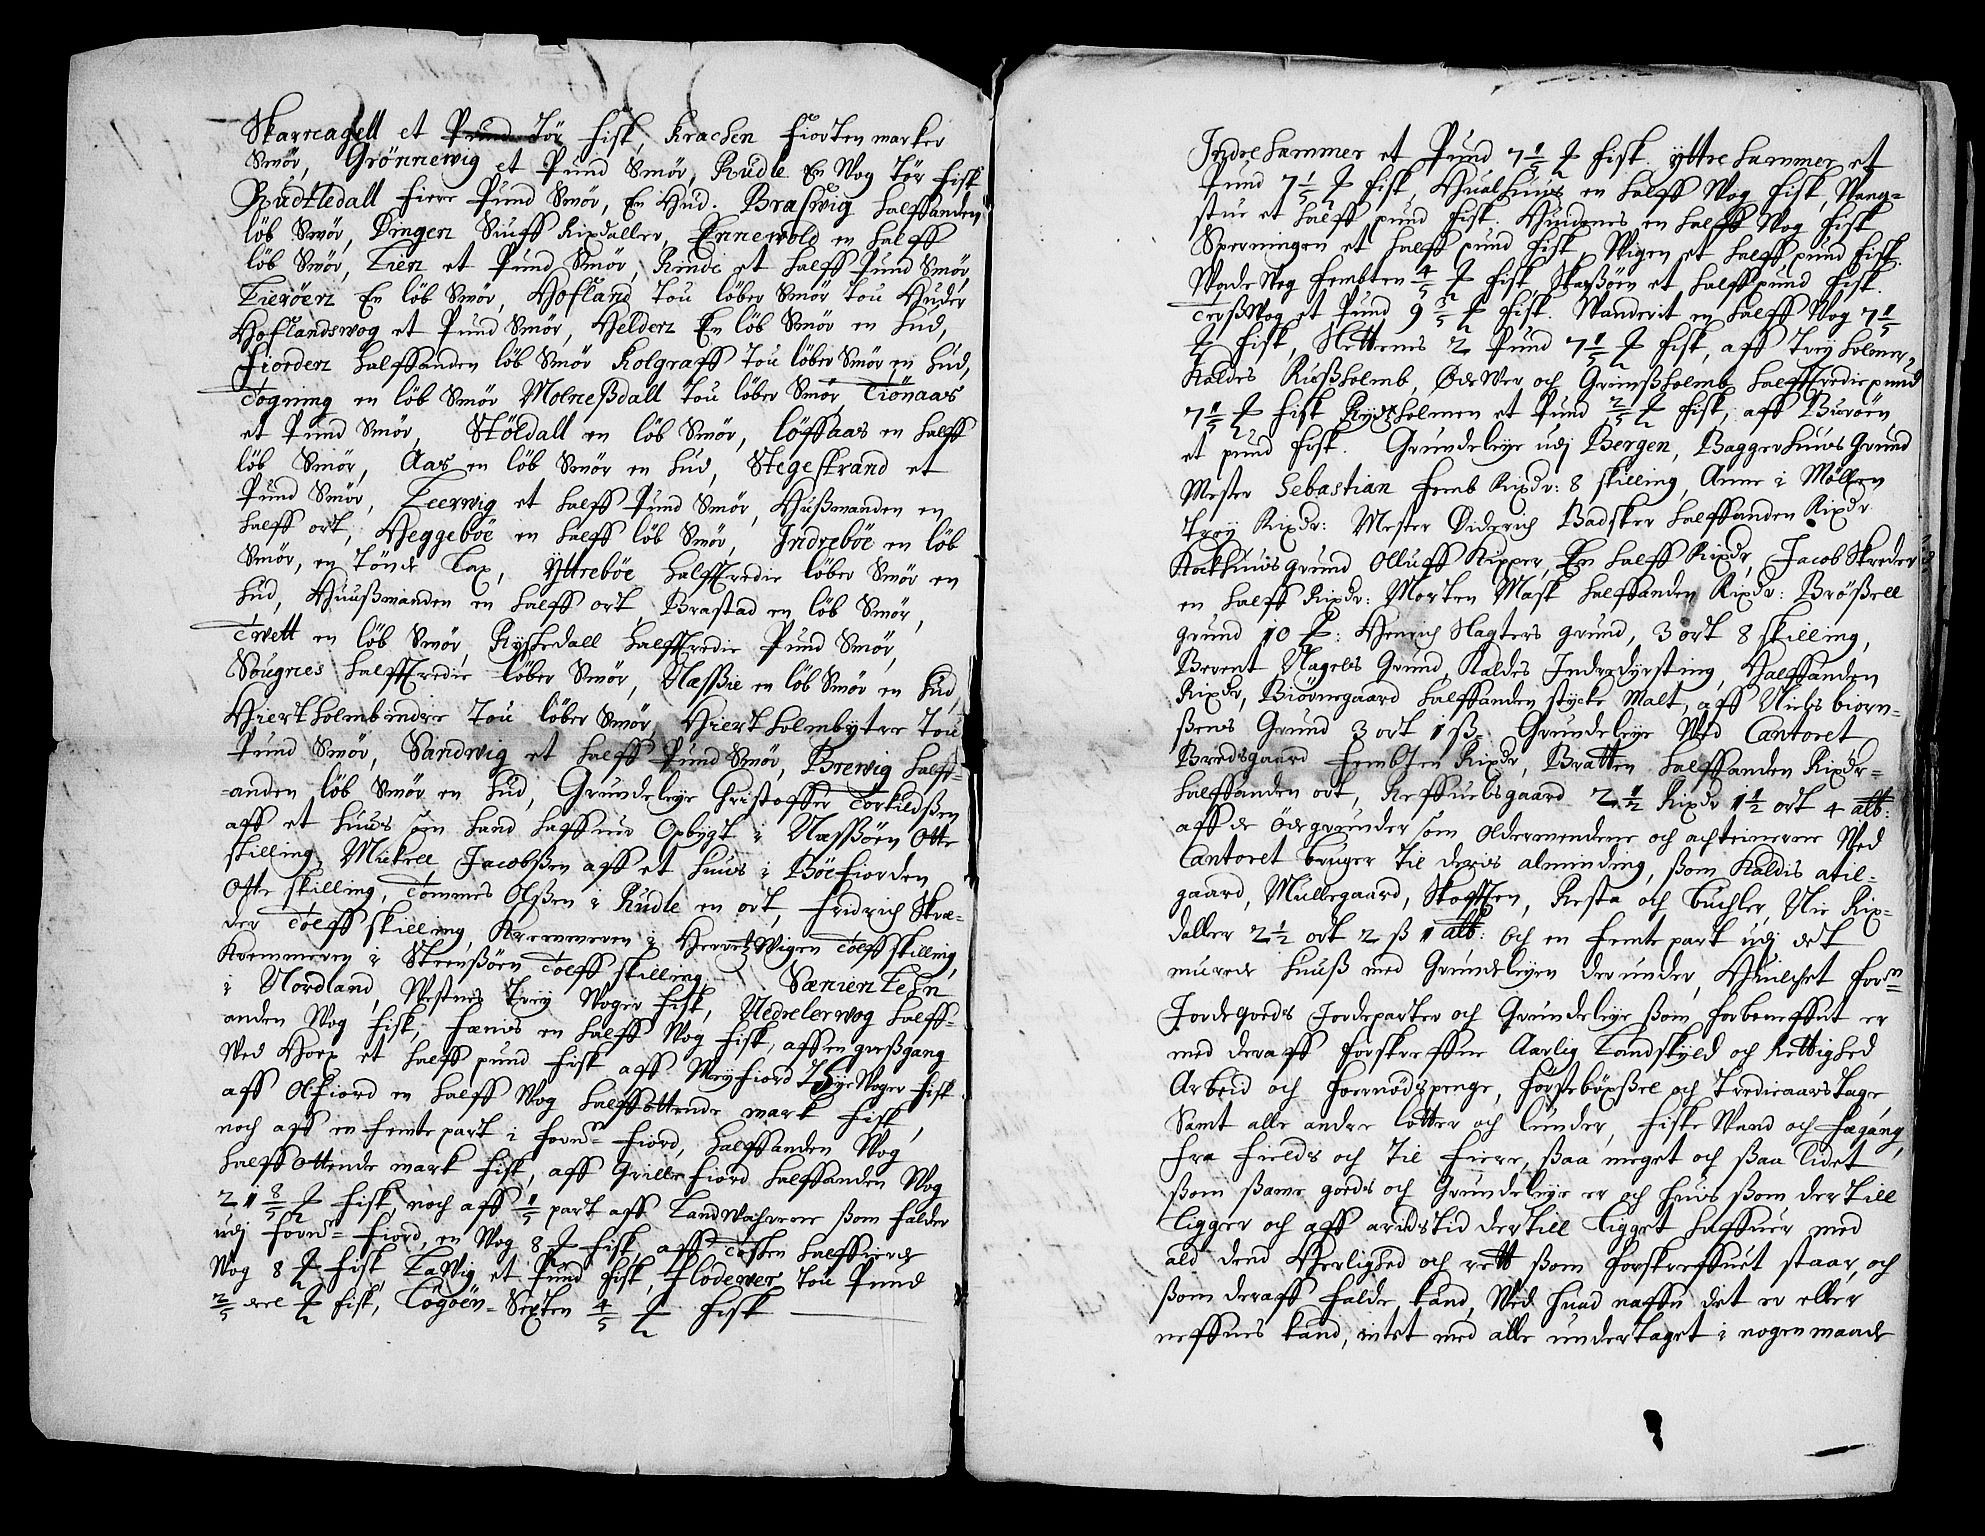 Skarreagell et Pund Tör Fisk, Krachen Fiorten marker
Smör, Grönnewig et Pund Smör, Rudle En Wog Tör Fisk
Rudtledall Fiere Pund Smör, En Hud. Braswig halffanden
löb Smör, Dingen Siuff Rixdaller, Ennewold en halff
löb Smör, Lien et Pund Smör, Rinde et halff Pund Smör,
Lieröen En löb Smör, Hofland Tou löber Smör Tou Huder
Hoflandswog et Pund Smör, Helden En löb Smör en Hud,
Fiorden halffanden löb Smör Kolgraff Tou löber Smör en Hud,
Togning en löb Smör Molneßdall Tou löber Smör Tiönaas
et Pund Smör, Stöldall en löb Smör, Löffaas en halff
löb Smör, Aas en löb Smör en Hud, Stegestrand et
Pund Smör, Leerwig et halff Pund Smör, Hußmanden en
halff ort, Heggeböe en halff löb Smör, Indreböe en löb
Smör, en Tönde Lax, Yttreböe halffTredie löber Smör en
Hud, Huußmanden en halff ort, Brastad en löb Smör,
Twett en löb Smör, Rysßedall halffTredie Pund Smör,
Sougnes halffTredie löber Smör, Næsßie en löb Smör en Hud,
Hiertholmbindre Tou löber Smör, Hiertholmbytre Tou
Pund Smör, Sandwig et halff Pund Smör, Brewig halff-
=anden löb Smör en Hud, Grundeleye Christoffer Torkildßen
aff et huus som hand haffuer Opbygt i Næsßöen Otte
skilling, Mickell Jacobßen aff et huus i Böefiorden
Otte skilling, Tommes Olßen i Rudle en ort, Fridrich Skræ-
der Tolff skilling, Kremmeren i Wigen Tolff skilling,
Kremmeren i Steenßöen Tolff skilling. Sænien Lehn
i Nordland, Westnes Trey Woger Fisk, Nedrelerwog halff-
anden Wog Fisk, Fænes en halff Wog Fisk, aff en greßgang
Wed Horp et halff pund Fisk aff Meyfiord Tye Woger Fisk
aff Olfiord en halff Wog halffottende mark Fisk,
noch aff en Femte part i Fornd= Fiord, halffanden Wog
halff Ottende mark Fisk, aff Grillefiord halffanden Wog
2 1 3/5 ℔ Fisk, noch aff 1/5 part aff Landwahrene ßom falder
udj Fornd= Fiord, en Wog 8 ℔ Fisk, aff Tosken halffierde
Wog 8 ℔ Fisk Lawig et Pund Fisk, Flodewer Tou Pund
2/5 deel ℔ Fisk, Logöen= Sexten 4/5 ℔ Fisk
Indrehammer et Pund 7 1/5 ℔ Fisk. yttrehammer et
Pund 7 1/5 ℔ Fisk, Hualhuus en halff Wog Fisk, Wang-
stue et halff pund Fisk. Hundenes en halff Wog Fisk
Sperningen et halff pund Fisk, Wigen et halff pund Fisk.
Wadewog Fembten 4/5 ℔ Fisk, Skarßöen et halff pund Fisk.
Torßwog et Pund 9 3/5 ℔ Fisk. Wanderit en halff Wog 7 1/5
℔ Fisk, Nettenes 2 Pund 7 1/5 ℔ Fisk, aff Trey holmer,
Kaldes Rußholmb, ØdeWer och Grimßholmb halffTredie pund
7 1/5 ℔ Fisk Rydßholmen et Pund 2/5 ℔ Fisk, aff Buröen
et pund Fisk. Grundeleye udj Bergen, Baggerhuus Grund
Mester Sebastian Femb Rixdr: 8 skilling, Anne i Möllen
Trey Rixdr: Mester Diderich Badsker halffanden Rixdr
Kockhuus Grund Olluff Kipper, En halff Rixdr, Jacob Skreder
en halff Rixdr: Morten Mask halffanden Rixdr: Brößell
grund 10 ß: Henrich Slagters grund, 3 ort 8 skilling,
Berent Nagels Grund, Kaldes Indredyrsting, Halffanden
Rixdr, Biörnegaard halffanden stycke Malt, aff Niels biorn-
ßens Grund 3 ort 1 ß= Grundeleye Wed Cantoret
Bredsgaard Fembten Rixdr, Bratten halffanden Rixdr=
halffanden ort, Reffuelsgaard 2 1/2 Rixdr 1 1/2 ort 4 alb:
aff de Ödegrunder som Oldermendene och achteinerne Wed
Cantoret bruger Til deris alminding, ßom Kaldis atil-
gaard, Mullegaard, Skotten, Resta och Buchler, Nie Rix-
daller 2 1/2 ort 2 ß 1 alb: Och en Femte part udj det
murede huuß med Grundeleyen derunder, Huilchet for=
Jordegods Jordeparter och Grundeleye ßom forbeneffnt er
med deraff forskreffne Aarlig Landskyld och Rettighed
Arbeid och Foernödspenge, Förstebögßel och Trediaarstage
Samt alle andre lotter och lunder, Fiske Wand och Fægang,
Fra Fields och Til Fiere, ßaa meget och ßaa lidet
ßom ßame gods och Grundeleye er och huis ßom dertill
Ligger och aff arildstid dertill Ligget haffuer med
ald dend Herlighed och rett ßom forskreffuet staar, och
ßom deraff falde kand, Wed huad naffn det er eller
neffnes kand, intet med alle undertaget i nogen maade